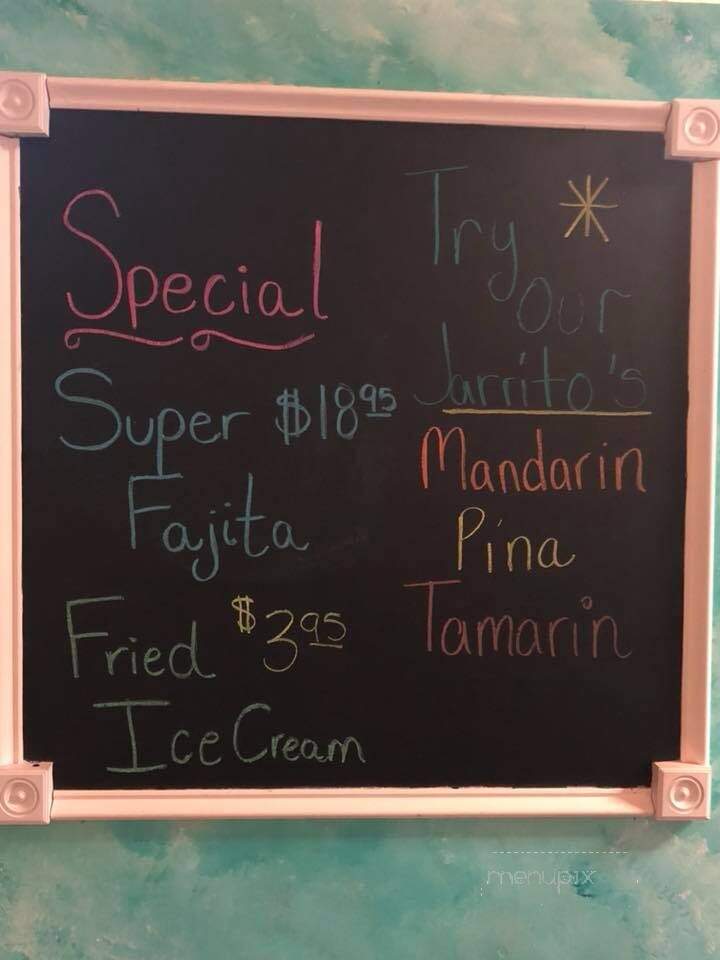 Special
Super $18.95
Fajita
Fried $3.95
Ice Cream
Try
Our
Jarrito's
Mandarin
Pina
Tamarin
menupix